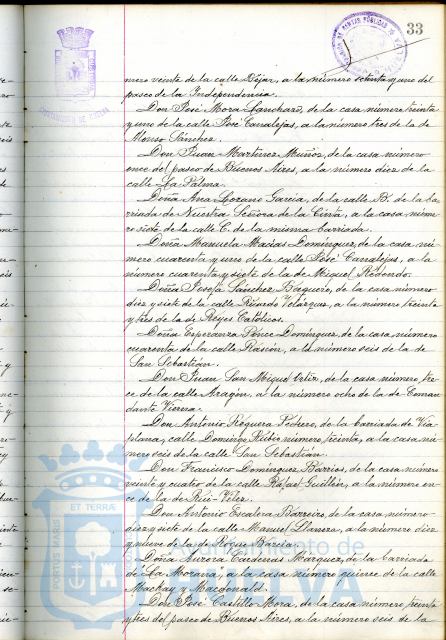 33
AYUNTAMIENTO DE HUELVA
mero veinte de la calle Béjar, a la número setenta y uno del
paseo de la Independencia.
Don José Mora Sanchaz, de la casa número treinta
y uno de la calle José Canalejas, a la número tres de la de
Alonso Sánchez.
Don Juan Martinez Muñoz, de la casa número
once del paseo de Buenos Aires, a la número diez de la
calle La Palma.
Doña Ana Lozano Garcia, de la calle B. de la ba
rriada de Nuestra Señora de la Cinta, a la casa núme
ro siete de la calle C. de la misma barriada.
Doña Manuela Macias Dominguez, de la casa nú
mero cuarenta y uno de la calle José Canalejas, a la
número cuarenta y siete de la de Miguel Redondo.
Doña Josefa Sánchez Baquero, de la casa número
diez y siete de la calle Rábida Velázquez, a la número treinta
y tres de la de Reyes Católicos.
Doña Esperanza Ponce Dominguez, de la casa número
cuarenta de la calle Rascón, a la número seis de la de
San Sebastián.
Don Juan San Miguel Ortiz, de la casa número tre
ce de la calle Aragón, a la número ocho de la de Coman
dante Vierna.
Don Antonio Reguera Pedrero, de la barriada de Via
plana, calle Domingo Rubio número treinta, a la casa nú
mero seis de la calle San Sebastián.
Don Francisco Dominguez Barrios, de la casa número
veinte y cuatro de la calle Rafael Guillén, a la número on
ce de la de Ruiz Vélez.
Don Antonio Escalera Barreiro, de la casa número
diez y siete de la calle Manuel Llanera, a la número diez
y nueve de la de Roque Barcia.
Doña Aurora Cárdenas Márquez, de la barriada
de La Morana, a la casa número quince de la calle
Mackay y Macdonald.
Don José Castillo Mora, de la casa número treinta
y tres del paseo de Buenos Aires, a la número seis de la
PORTUS MARIS ET TERRAE
Ayuntamiento de
HUELVA